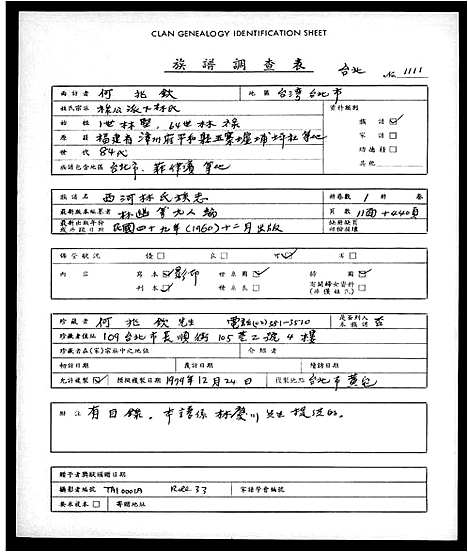 CLAN GENEALOGY IDENTIFICATION SHEET
族譜調查表 台北 No 1111
面訪者 何兆欽 地區 台湾台北市
姓氏宗派 穆公派下林氏 資料類別
始祖 1世林堅,64世林穆 族譜
原籍 福建省漳州府平和縣五寨墟埔坪社等地 家譜
世代 84代 功德榜
族譜包含地區 台北市、菲律濱等地 其他
族譜名 西河林氏族志 冊卷數 1 冊 卷
最新版本編纂者 林 等九人編 頁數 11面+440頁
最新出版年份或手段日期 民國四十九年(1960)十二月出版
保管狀況 優 良 可 劣
內容 寫本 影印 世系圖 綿圖
刊本 世系表
珍藏者 何兆欽先生 電話(02)551-3510 是否列入本族譜 否
珍藏者住址 109台北市長順街105巷二號4樓
珍藏者在(宗)家族中之地位 介紹者
初訪日期 複訪日期 續訪日期
允許複製 攝微複製日期 1979年12月24日 複製地點 台北市黃宅
附注 有目錄。申請係林慶川先生提供的。
贈予者獎狀頒贈日期
攝影者編號 TA10001A Roll 33 家譜學會編號
要求複本 寄贈地址